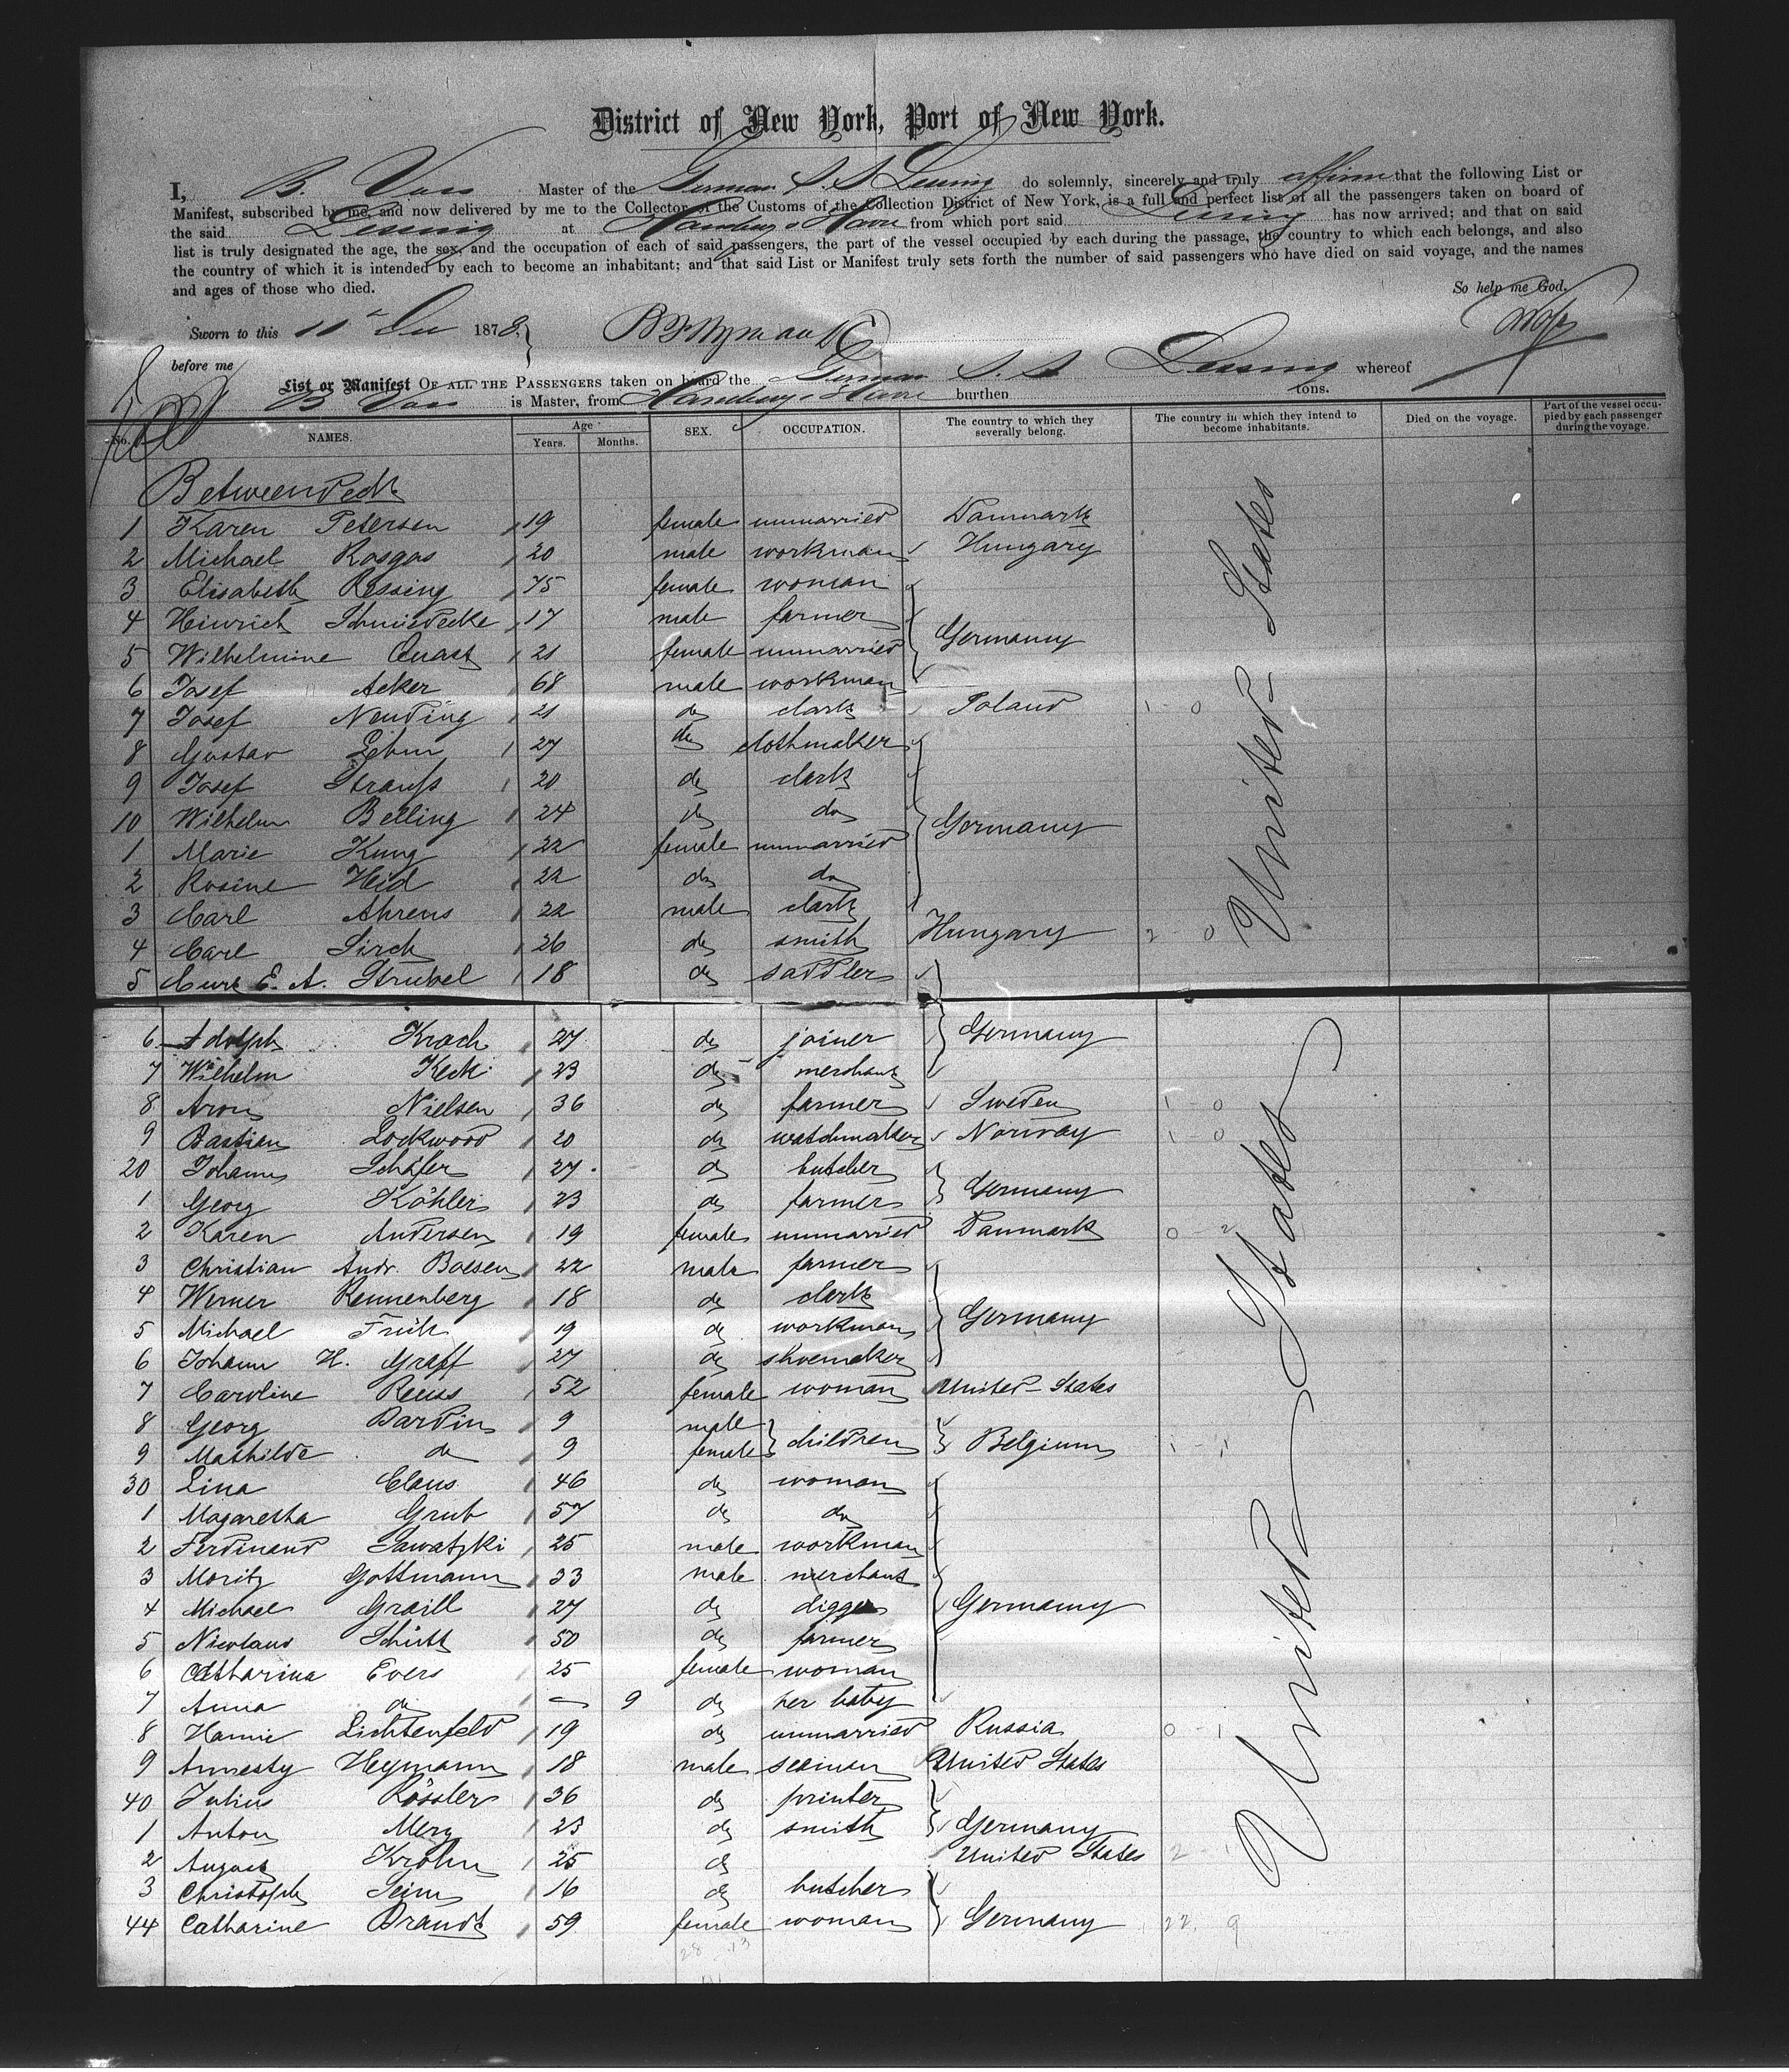 District of New York, Port of New York.
I, B. Voss Master of the German S. S Lessing do solemnly, sincerely and truly affirm that the following List or
Manifest, subscribed by me, and now delivered by me to the Collector of the Customs of the Collection District of New York, is a full and perfect list of all the passengers taken on board of
the said Lessing at Hamburg & Havre from which port said Lessing has now arrived; and that on said
list is truly designated the age, the sex, and the occupation of each of said passengers, the part of the vessel occupied by each during the passage, the country to which each belongs, and also
the country of which it is intended by each to become an inhabitant; and that said List or Manifest truly sets forth the number of said passengers who have died on said voyage, and the names
and ages of those who died. So help me God.
Sworn to this 11 Dec 1878.
before me
List or Manifest OF ALL THE PASSENGERS taken on board the German S. S. Lessing whereof
B Voss is Master, from Hamburg & Havre burthen tons.
No. NAMES. Age Years. Months. SEX. OCCUPATION. The country to which they severally belong. The country in which they intend to become inhabitants. Died on the voyage. Part of the vessel occupied by each passenger during the voyage.
Betweendeck
1 Karen Petersen 19 female unmarried Danmark
2 Michael Rosgos 20 male workman Hungary
3 Elisabeth Ressing 75 female woman
4 Heinrich Schmiedecke 17 male farmer
5 Wilhelmine Quast 21 female unmarried Germany
6 Josef Acker 68 male workman
7 Josef Neuding 21 do clark Poland 1 - 0
8 Gustav Lehm 27 do clothmaker
9 Josef Strauß 20 do clark
10 Wilhelm Belling 24 do do Germany
1 Marie Kung 22 female unmarried
2 Rosine Heid 22 do do
3 Carl Ahrens 22 male clark
4 Carl Sirch 26 do smith Hungary 2 - 0
5 Curt E. A. Strubel 18 do saddler
United States
6 Adolph Kroch 27 do joiner Germany
7 Wilhelm Keck 23 do merchant
8 Aron Nielsen 36 do farmer Sweden 1 - 0
9 Bastian Lockwood 20 do watchmaker Norway 1 - 0
20 Johann Schäfer 27 do butcher
1 Georg Köhler 23 do farmer Germany
2 Karen Andersen 19 female unmarried Danmark 0 - 2
3 Christian Andr. Boesen 22 male farmer
4 Werner Rennenberg 18 do clark
5 Michael Früh 19 do workman Germany
6 Johann H. Graff 27 do shoemaker
7 Caroline Reuss 52 female woman United States
8 Georg Bardin 9 male
9 Mathilde do 9 female children Belgium 1 - 1
30 Lina Claus 46 do woman
1 Magaretha Grub 57 do do
2 Ferdinand Sawatzki 25 male workman
3 Moritz Gottmann 33 male merchant
4 Michael Graill 27 do digger Germany
5 Nicolaus Schütt 50 do farmer
6 Catharina Evers 25 female woman
7 Anna do 9 do her baby
8 Hannie Lichtenfeld 19 do unmarried Russia 0 - 1
9 Amnesty Heymann 18 male seaman United States
40 Julius Rössler 36 do printer
1 Anton Merz 23 do smith Germany
2 August Kröhn 25 do United States 2 - 1
3 Christoph Seim 16 do butcher
44 Catharine Brandt 59 female woman Germany 22 9
28 - 13
United States